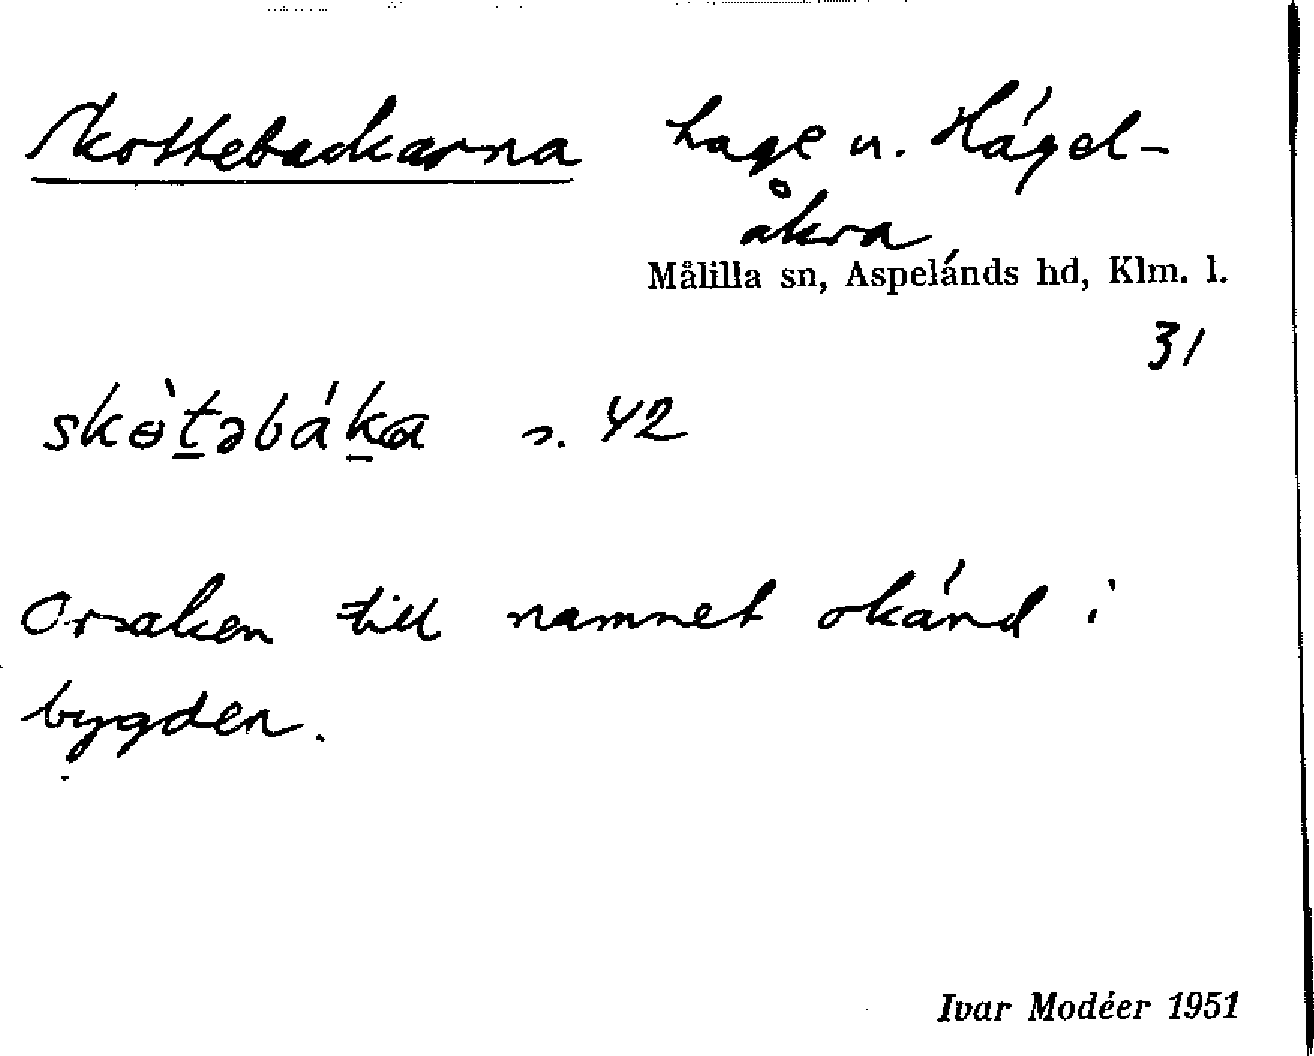 Skottebackarna hage u. Hágel-
åkra
Målilla sn, Aspelánds hd, Klm. l.
31
skɵ̀t̲əbák̲a s. 42
Orsaken till namnet okánd i
bygden.
Ivar Modéer 1951